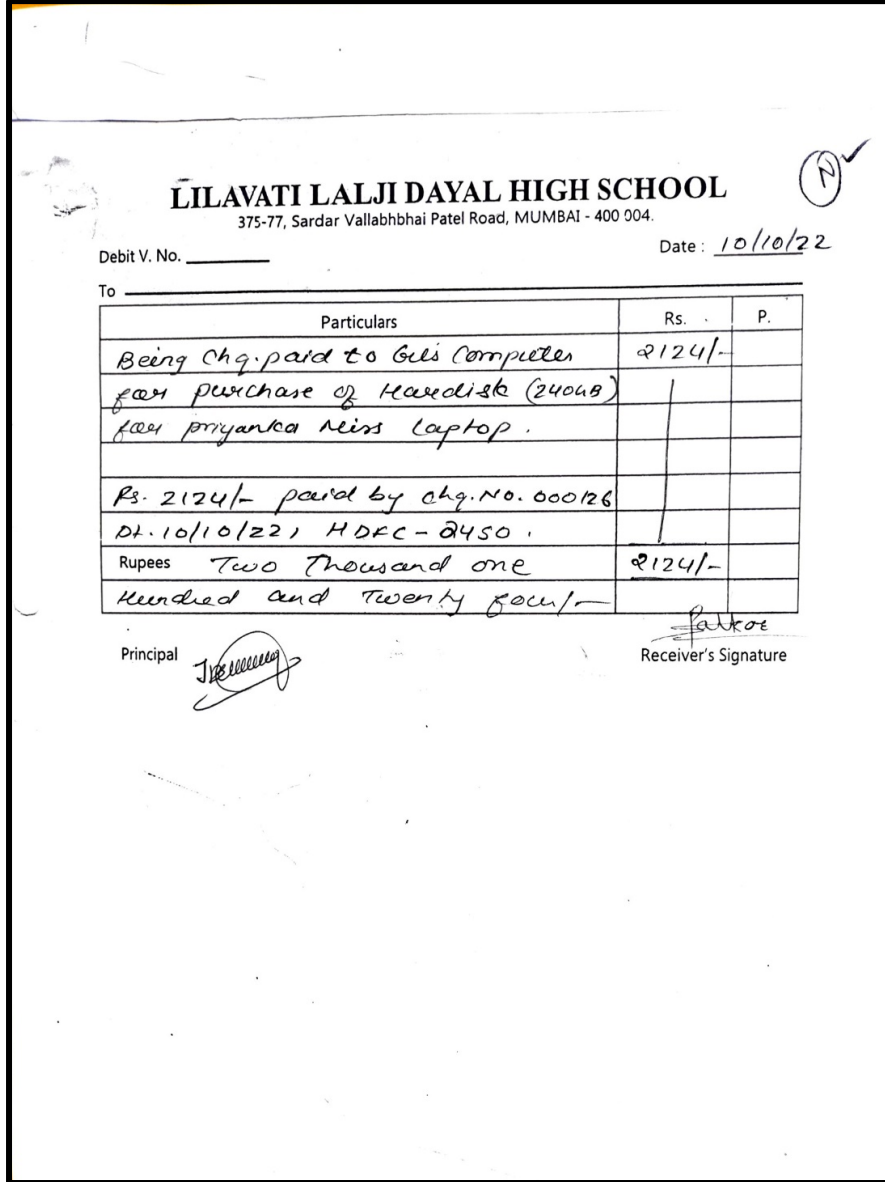 N
LILAVATI LALJI DAYAL HIGH SCHOOL
375-77, Sardar Vallabhbhai Patel Road, MUMBAI - 400 004.
Debit V. No.
Date : 10/10/22
To
Particulars Rs. P.
Being Chq. paid to Computer 2124/-
for purchase of Hardisk (240GB)
for priyanka Miss laptop.
Rs. 2124/- paid by chq. No. 000126
Dt. 10/10/22, HDFC - 2450.
Rupees Two Thousand one 2124/-
Hundred and Twenty four/-
Principal
Receiver's Signature